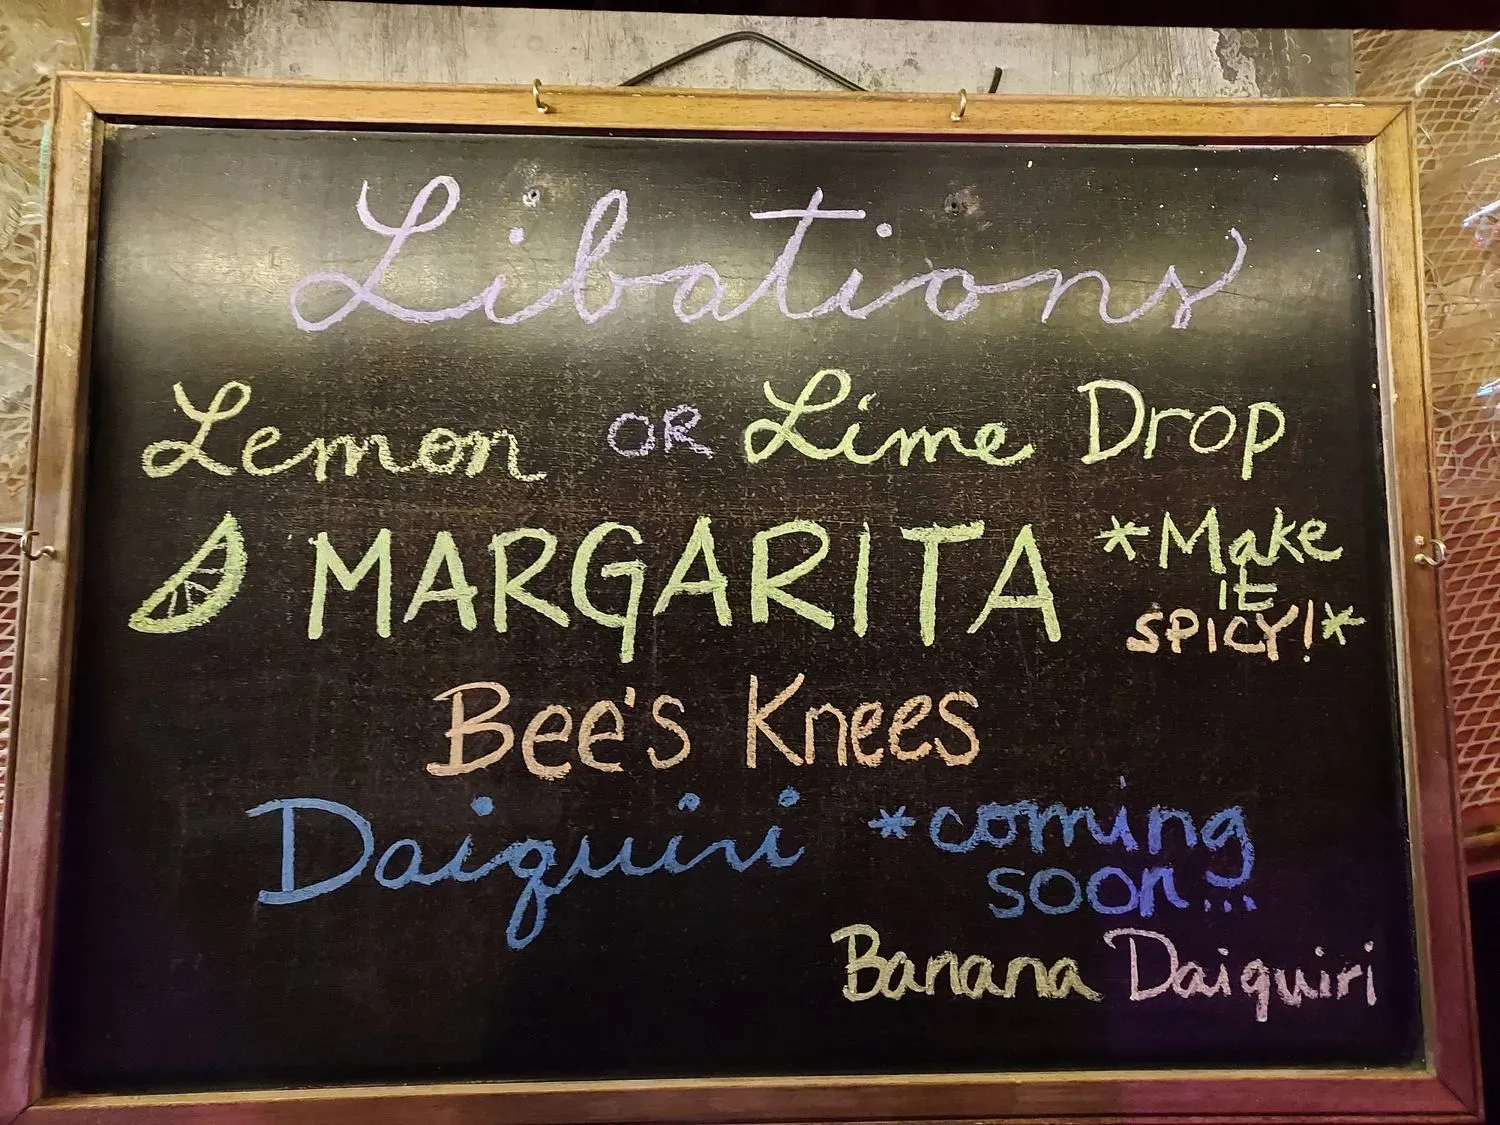 Libations
Lemon OR Lime Drop
MARGARITA *Make
it
SPICY!*
Bee's Knees
Daiquiri *coming
soon...
Banana Daiquiri